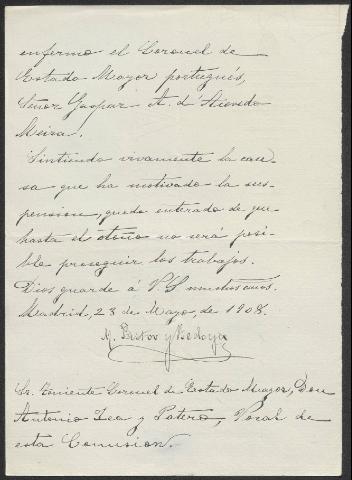 enfermo el Coronel de
Estado Mayor portugués,
Señor Gaspar A. d'Acevedo
Meira.
Sintiendo vivamente la cau-
sa que ha motivado la sus-
pension, quedo enterado de que
hasta el otoño no será posi-
ble proseguir los trabajos.
Dios guarde á VS muchos años.
Madrid, 23 de Mayo, de 1908.
M. Pastor y Bedoya
Sr. Teniente Coronel de Estado Mayor, Don
Antonio Zea y Patero, Vocal de
esta Comision.